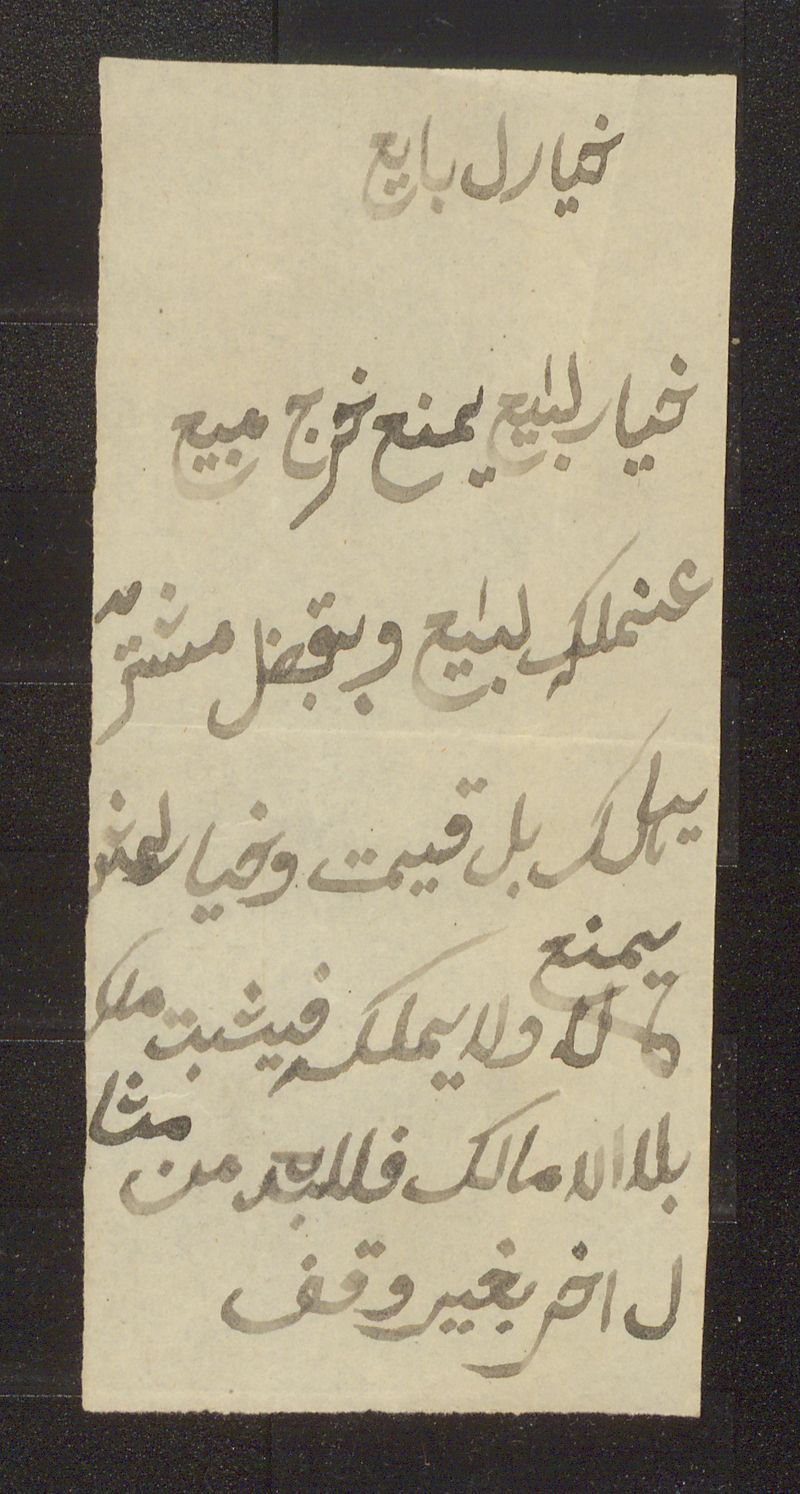 خيار ل بايع
خيار لبايع يمنع خرج مبيع
عنملك لبايع و بقبضل مشتر
يملك بل قيمت و خيار لمشتر
يمنع
لا ولا يملكه فيثبت ملك
بلا الا مالك فللبد من مثا
ل اخر بغير وقف